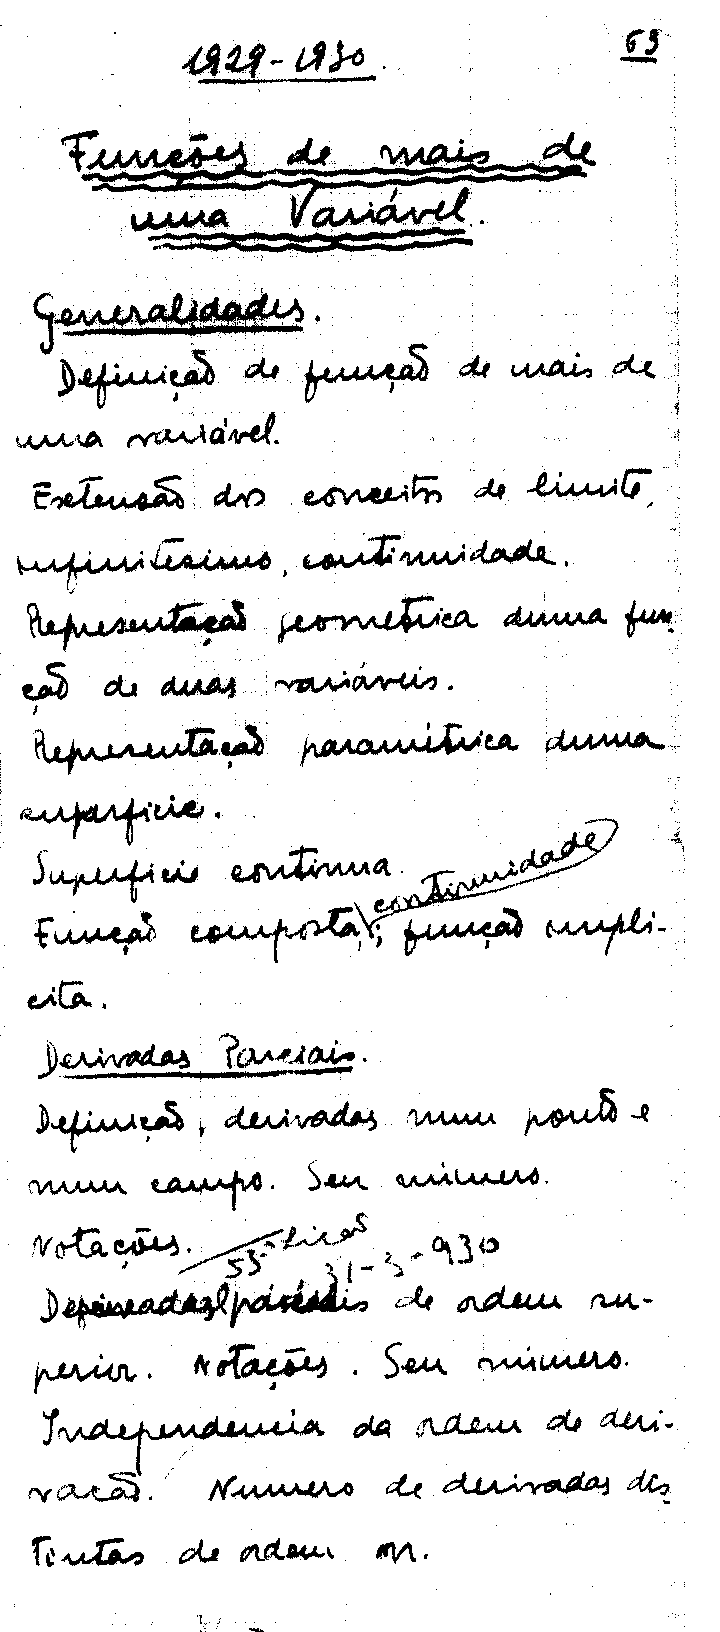 1929-1930.
69
Funções de mais de
uma Variável.
Generalidades.
Definição de função de mais de
uma variável.
Extensão dos conceitos de limite,
infinitésimo, continuidade.
Representação geometrica duma fun-
ção de duas variáveis.
Representação paramétrica duma
superficie.
Superficie continua.
continuidade
Função composta,; função impli-
cita.
Derivadas Parciais.
Definição, derivadas num ponto e
num campo. Seu número.
Notações.
53ª lição
31-3-930
de ordem su-
perior. Notações. Seu número.
Independencia da ordem de deri-
vação. Numero de derivadas dis-
tintas de ordem m.